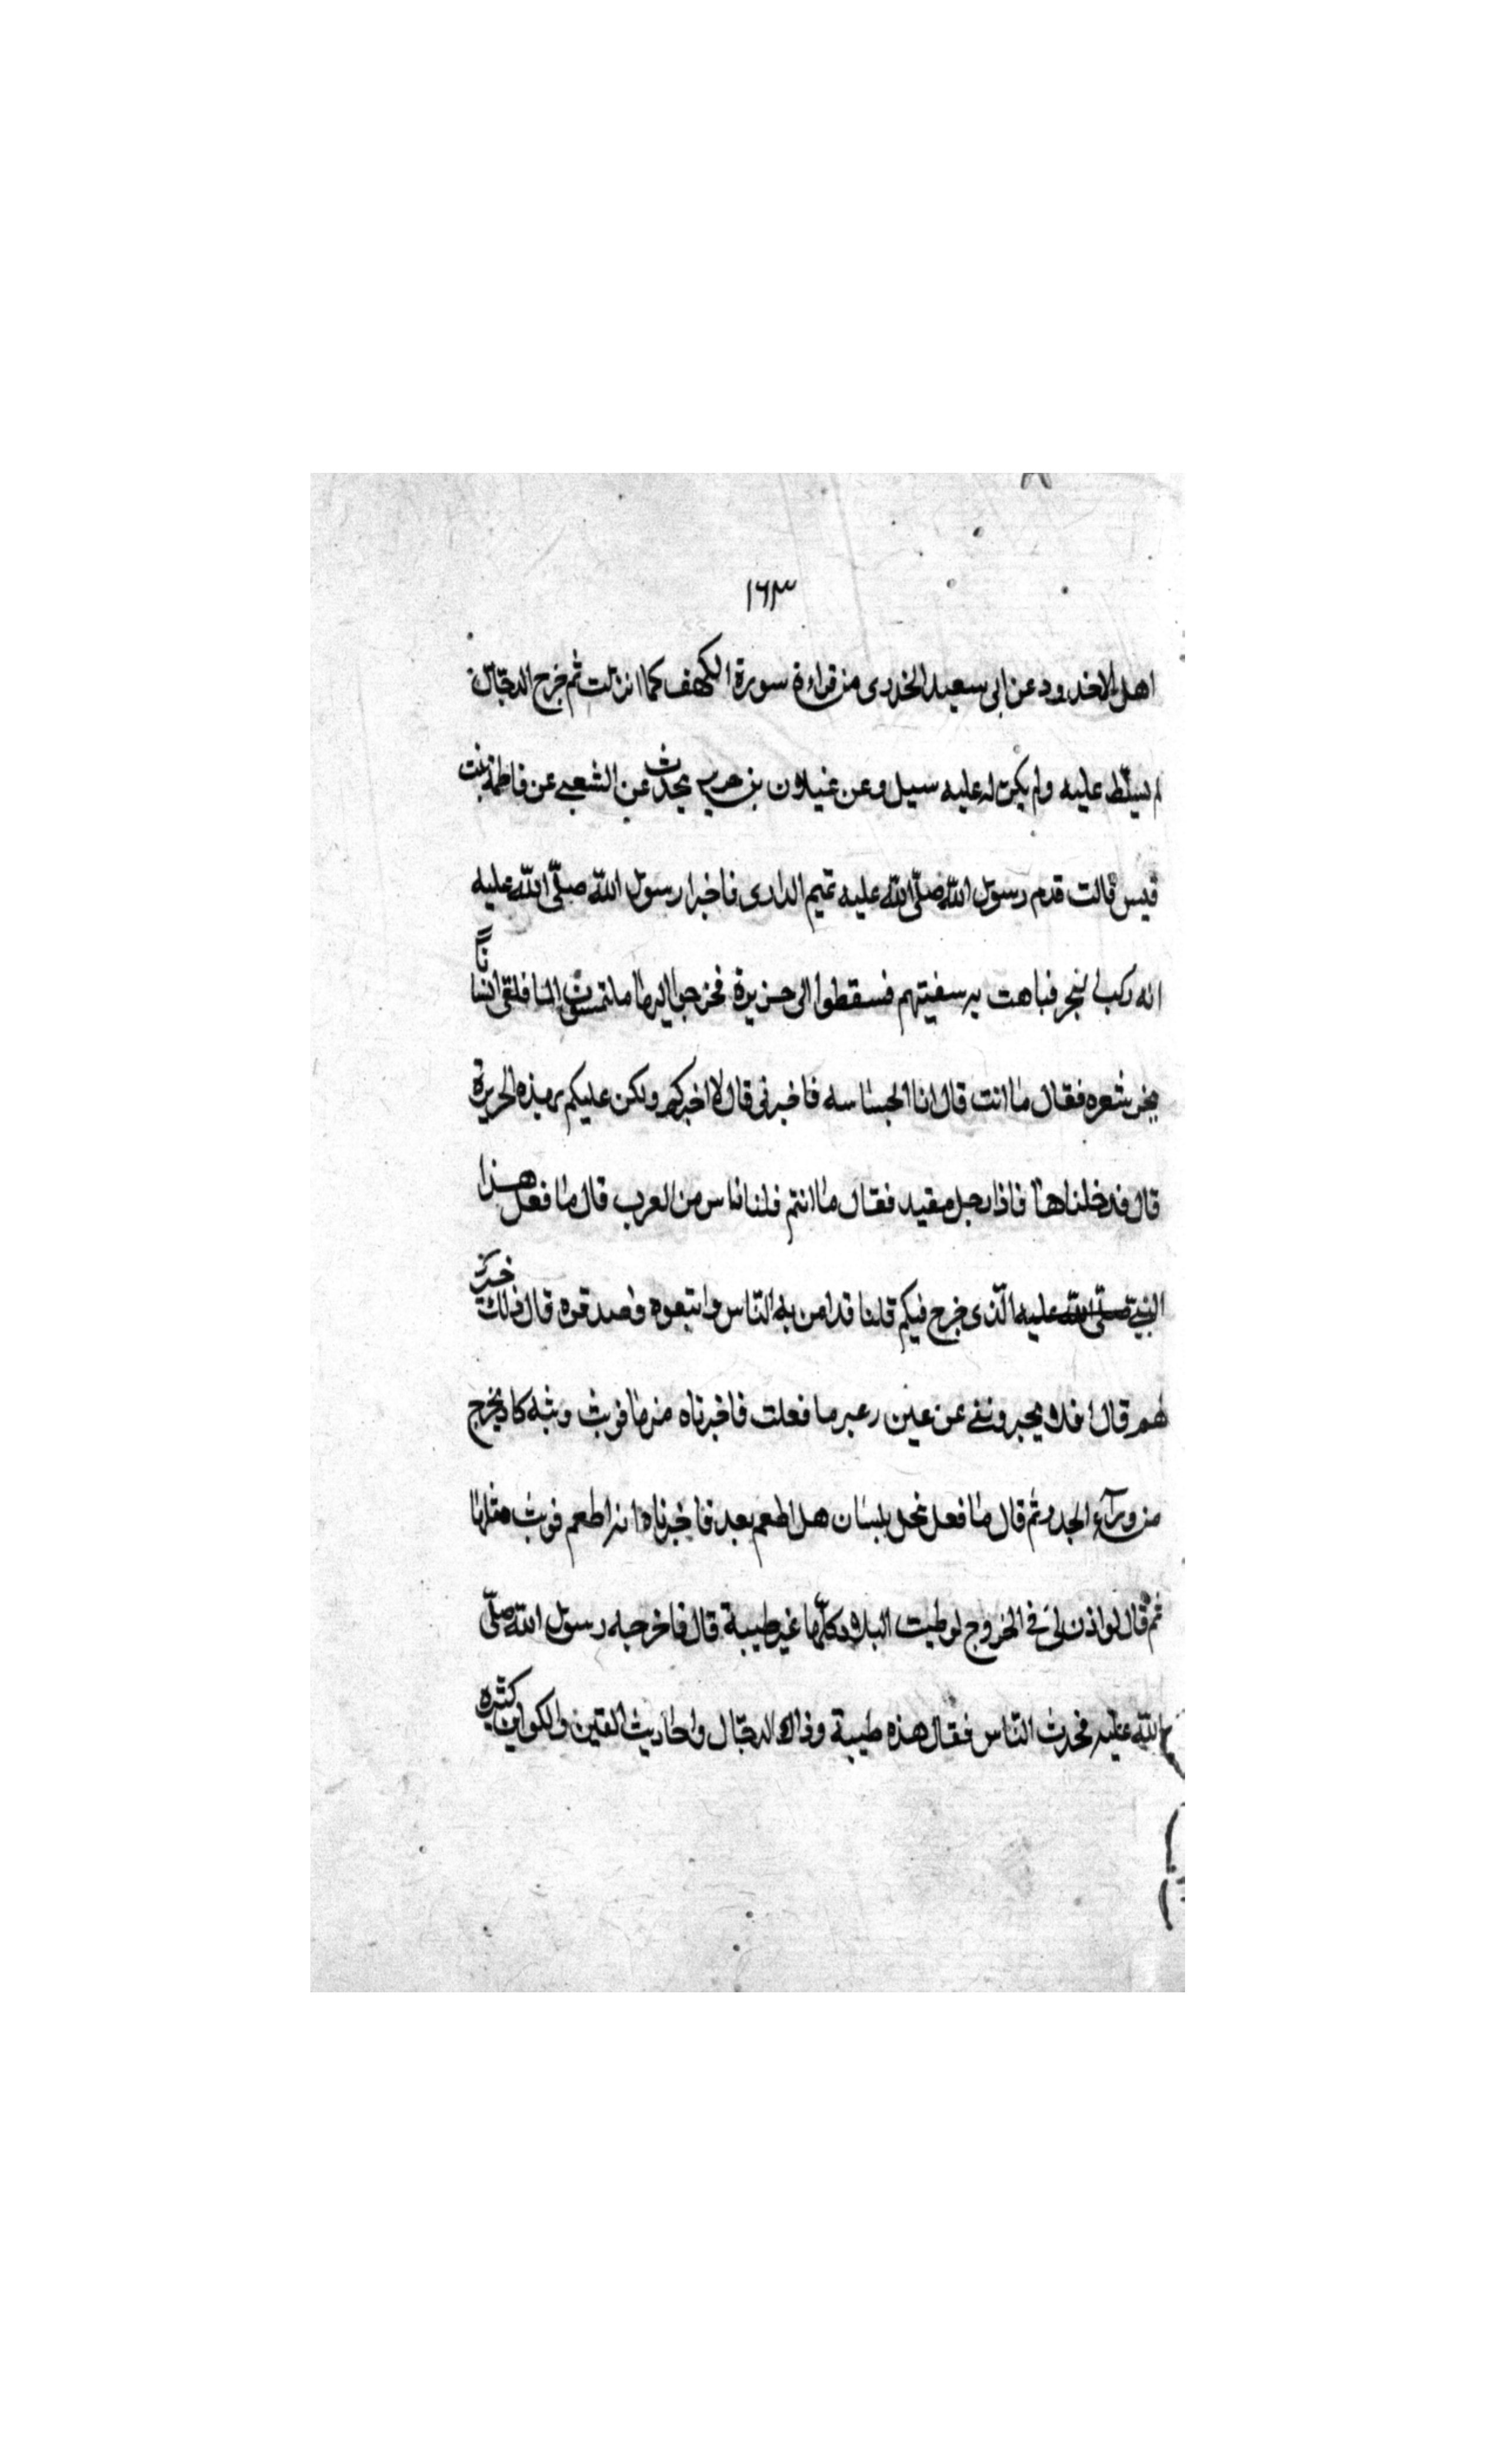 ١٦٣
اهل الاخدود عن ابى سعيد الخدرى من قراءة سورة الكهف كما انزلت ثم خرج الدجّال
لم يسلّط عليه ولم يكن له عليه سبيل وعن غيلان بن جرير يحدث عن الشعبى عن فاطمة بنت
قيس قالت قدم رسول اللّه صلّى اللّه عليه تميم الدارى فاخبر رسول اللّه صلّى اللّه عليه
انه ركب البحر فتاهت به سفينتهم فسقطوا الى جزيرة فخرجوا اليها يلتمسون الما فلقى انسانًا
يجر شعره فقال ما انت قال انا الجساسه فاخبرنى قال لا اخبركم ولكن عليكم بهذه الجزيرة
قال فدخلناها فاذا رجل مقيد فقال ما انتم قلنا ناس من العرب قال ما فعل هذا
النبى صلّى اللّه عليه الّذى خرج فيكم قلنا قد امن به النّاس واتبعوه وصدقوه قال ذلك خير
لهم قال افلا تخبرونى عن عين زعر ما فعلت فاخبرناه عنها فوثب وثبة كاد يخرج
من ورآء الجدر ثم قال ما فعل نخل بيسان هل اطعم بعد فاخبرناه انه اطعم فوثب مثلها
ثم قال لو اذن لى فى الخروج لوطيت البلاد كلّها غير طيبة قال فاخرجه رسول اللّه صلّى
اللّه عليه فحدث النّاس فقال هذه طيبة وذاك الدجّال واحاديث الفتن والكواين كثيره